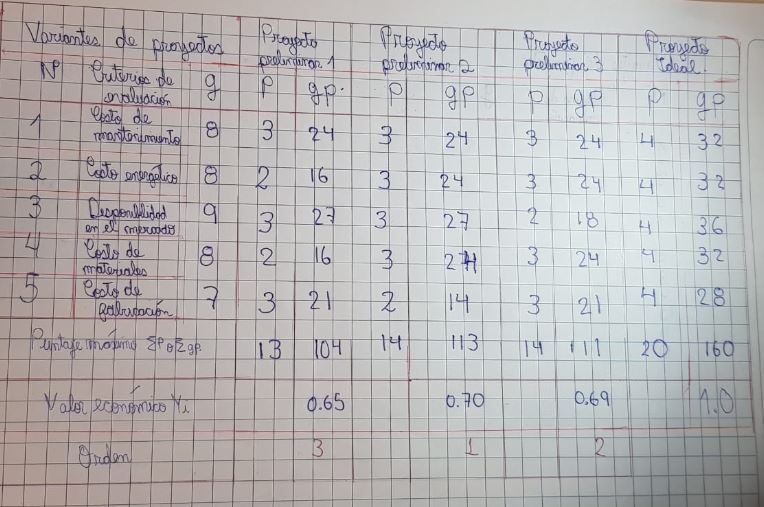 Variantes de proyectos Proyecto preliminar 1 Proyecto preliminar 2 Proyecto preliminar 3 Proyecto Ideal.
Nº Criterios de evaluación g p gp. p gp p gp p gp
1 Costo de mantenimiento 8 3 24 3 24 3 24 4 32
2 Costo energético 8 2 16 3 24 3 24 4 32
3 Disponibilidad en el mercado 9 3 27 3 27 2 18 4 36
4 Costo de materiales 8 2 16 3 24 3 24 4 32
5 Costo de fabricación 7 3 21 2 14 3 21 4 28
Puntaje máximo Σp o Σgp 13 104 14 113 14 111 20 160
Valor económico Yi 0.65 0.70 0.69 1.0
Orden 3 1 2